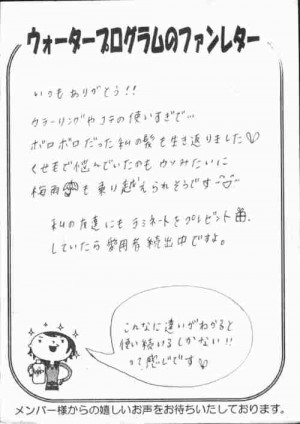 ウォータープログラムのファンレター
いつもありがとう!!
カラーリングやコテの使いすぎで…
ボロボロだった私の髪も生き返りました♡
くせ毛で悩んでいたのもウソみたいに
梅雨も乗り越えられそうです
私の友達にもラミネートをプレゼント
していたら愛用者続出中ですよ。
こんなに違いがわかると
使い続けるしかない!!
って感じです♡
メンバー様からの嬉しいお声をお待ちいたしております。